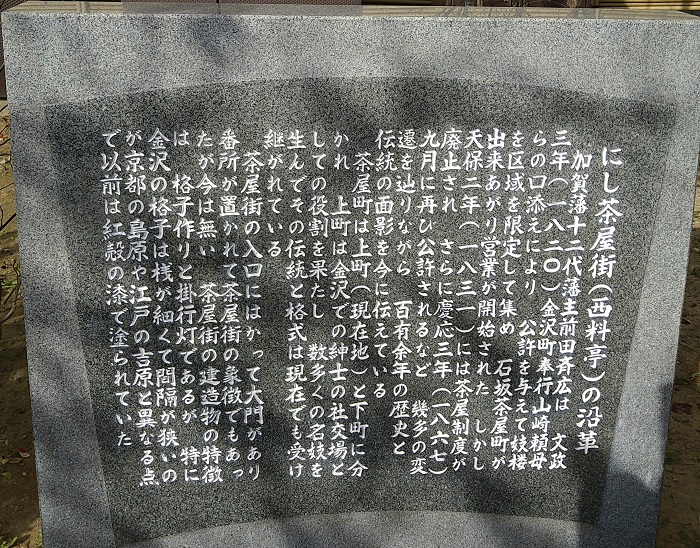 にし茶屋街(西料亭)の沿革
加賀藩十二代藩主前田斉広は 文政
三年(一八二〇)金沢町奉行山崎頼母
らの口添えにより 公許を与えて妓楼
を区域を限定して集め 石坂茶屋町が
出来あがり営業が開始された しかし
天保二年(一八三一)には茶屋制度が
廃止され さらに慶応三年(一八六七)
九月に再び公許されるなど 幾多の変
遷を辿りながら 百有余年の歴史と
伝統の面影を今に伝えている
茶屋町は上町(現在地)と下町に分
かれ 上町は金沢での紳士の社交場と
しての役割を果たし 数多くの名妓を
生んでその伝統と格式は現在でも受け
継がれている
茶屋街の入口にはかって大門があり
番所が置かれて茶屋街の象徴でもあっ
たが今は無い 茶屋街の建造物の特徴
は 格子作りと掛行灯であるが 特に
金沢の格子は桟が細くて間隔が狭いの
が京都の島原や江戸の吉原と異なる点
で以前は紅殻の漆で塗られていた